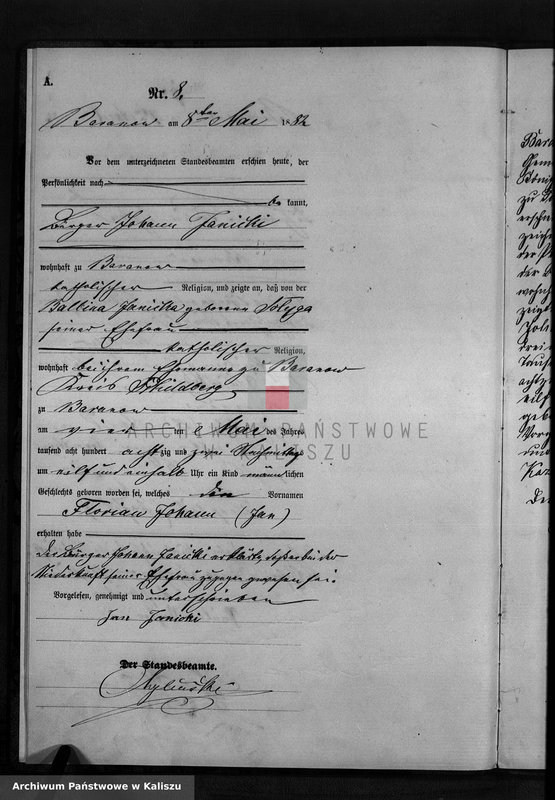 A.
Nr. 8.
Baranow am 8ten Mai 1882
Vor dem unterzeichneten Standesbeamten erschien heute, der
Persönlichkeit nach
be kannt,
Bürger Johann Janicki
wohnhaft zu Baranow
katholischer Religion, und zeigte an, daß von der
Janicka geborene
seiner Ehefrau
katholischer Religion,
wohnhaft bei ihrem Ehemanne zu Baranow
Kreis Schildberg
zu Baranow
am vier ten Mai des Jahres
tausend acht hundert acht zig und zwei Nachmittags
um eilf und einhalb Uhr ein Kind männ lichen
Geschlechts geboren worden sei, welches den Vornamen
Florian Johann (Jan)
erhalten habe
Der Bürger Johann Janicki erklärte, daß er bei der
Niederkunft seiner Ehefrau zugegen gewesen sei.
Vorgelesen, genehmigt und unterschrieben
Jan Janicki
Der Standesbeamte.
ARCHIWUM PAŃSTWOWE
W KALISZU
Archiwum Państwowe w Kaliszu